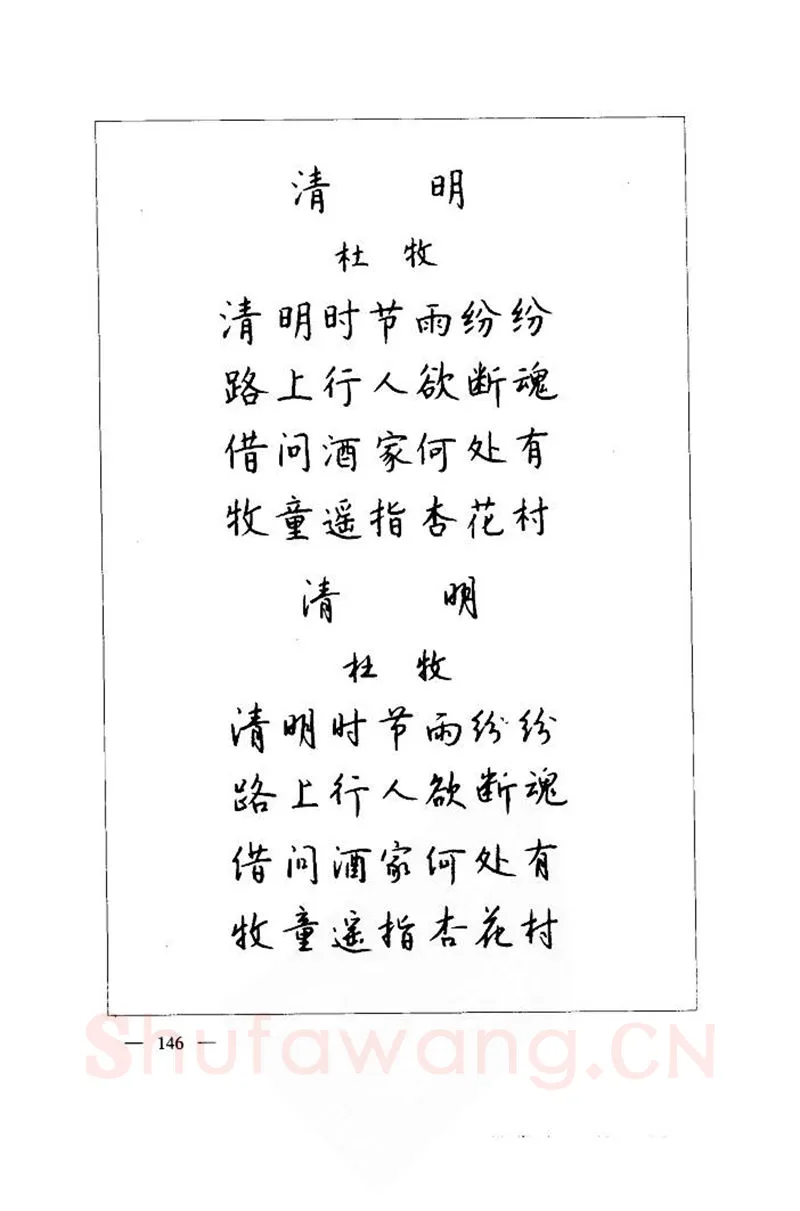 清 明
杜 牧
清明时节雨纷纷
路上行人欲断魂
借问酒家何处有
牧童遥指杏花村
清 明
杜 牧
清明时节雨纷纷
路上行人欲断魂
借问酒家何处有
牧童遥指杏花村
— 146 —
Shufawang.CN